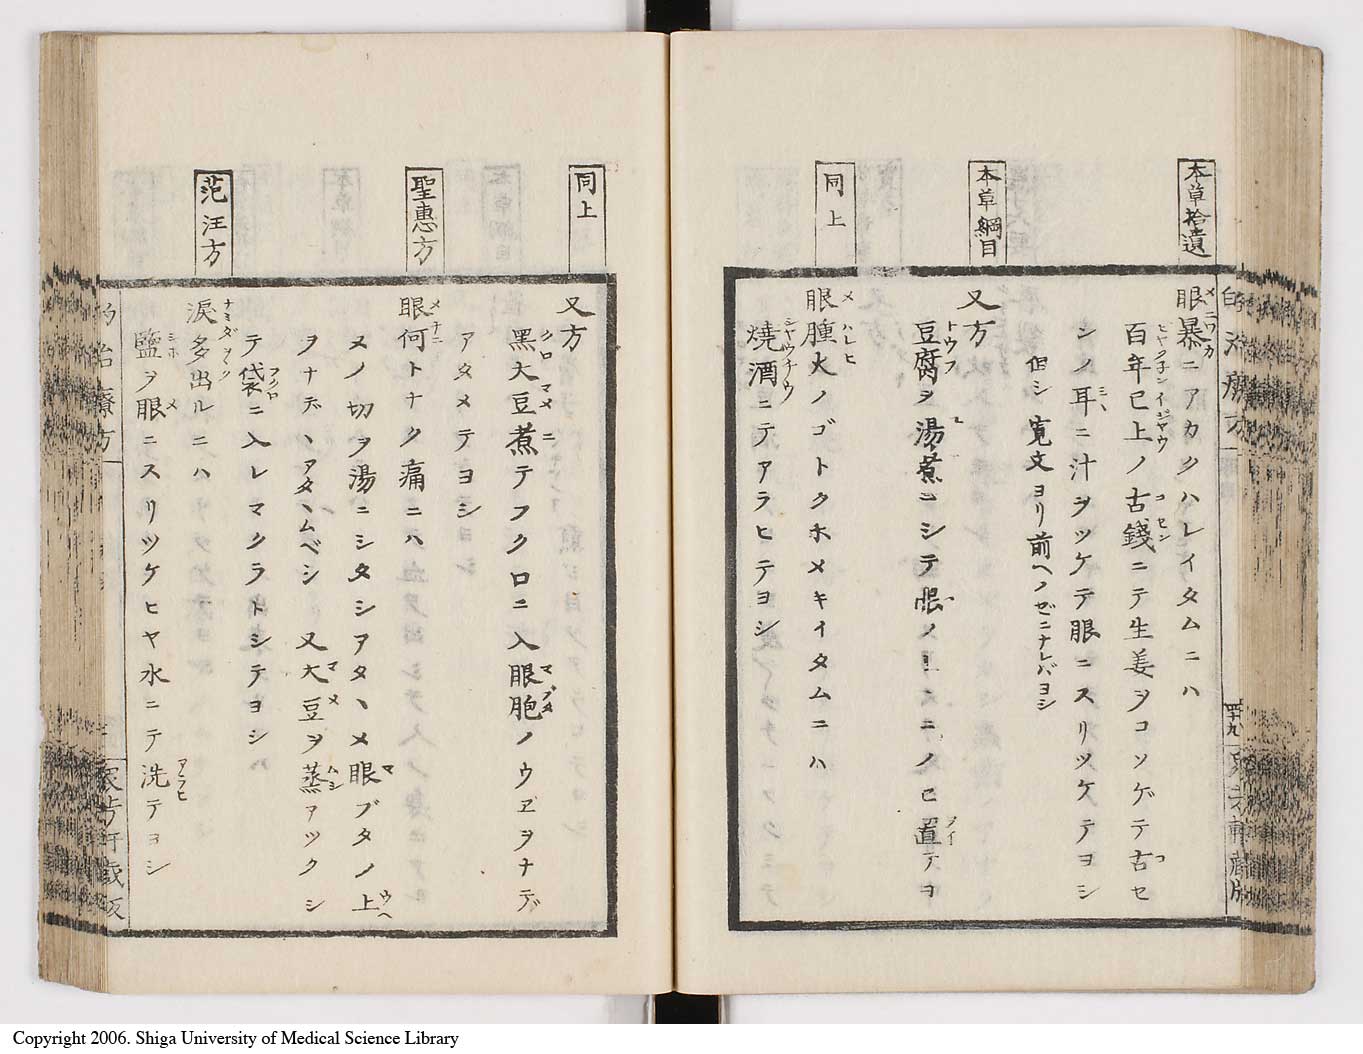 本草拾遺
眼暴ニアカクハレイタムニハ
百年已上ノ古錢ニテ生姜ヲコソゲテ古セ
シノ耳ニ汁ヲツケテ眼ニスリツケテヨシ
但シ寛文ヨリ前ヘノゼニナレバヨシ
本草綱目
又方
豆腐ヲ湯煮ニシテ眼ノ上ニノセ置テヨ
同上
眼腫火ノゴトクホメキイタムニハ
燒酒ニテアラヒテヨシ
同上
又方
黑大豆煮テフクロニ入眼胞ノウヱヲナデ
アタメテヨシ
聖惠方
眼何トナク痛ニハ
ヌノ切ヲ湯ニシタシアタヽメ眼ブタノ上
ヲナデヽアタヽムベシ 又大豆ヲ蒸アツクシ
テ袋ニ入レマクラトシテヨシ
范汪方
淚多出ルニハ
鹽ヲ眼ニスリツケヒヤ水ニテ洗テヨシ
Copyright 2006. Shiga University of Medical Science Library